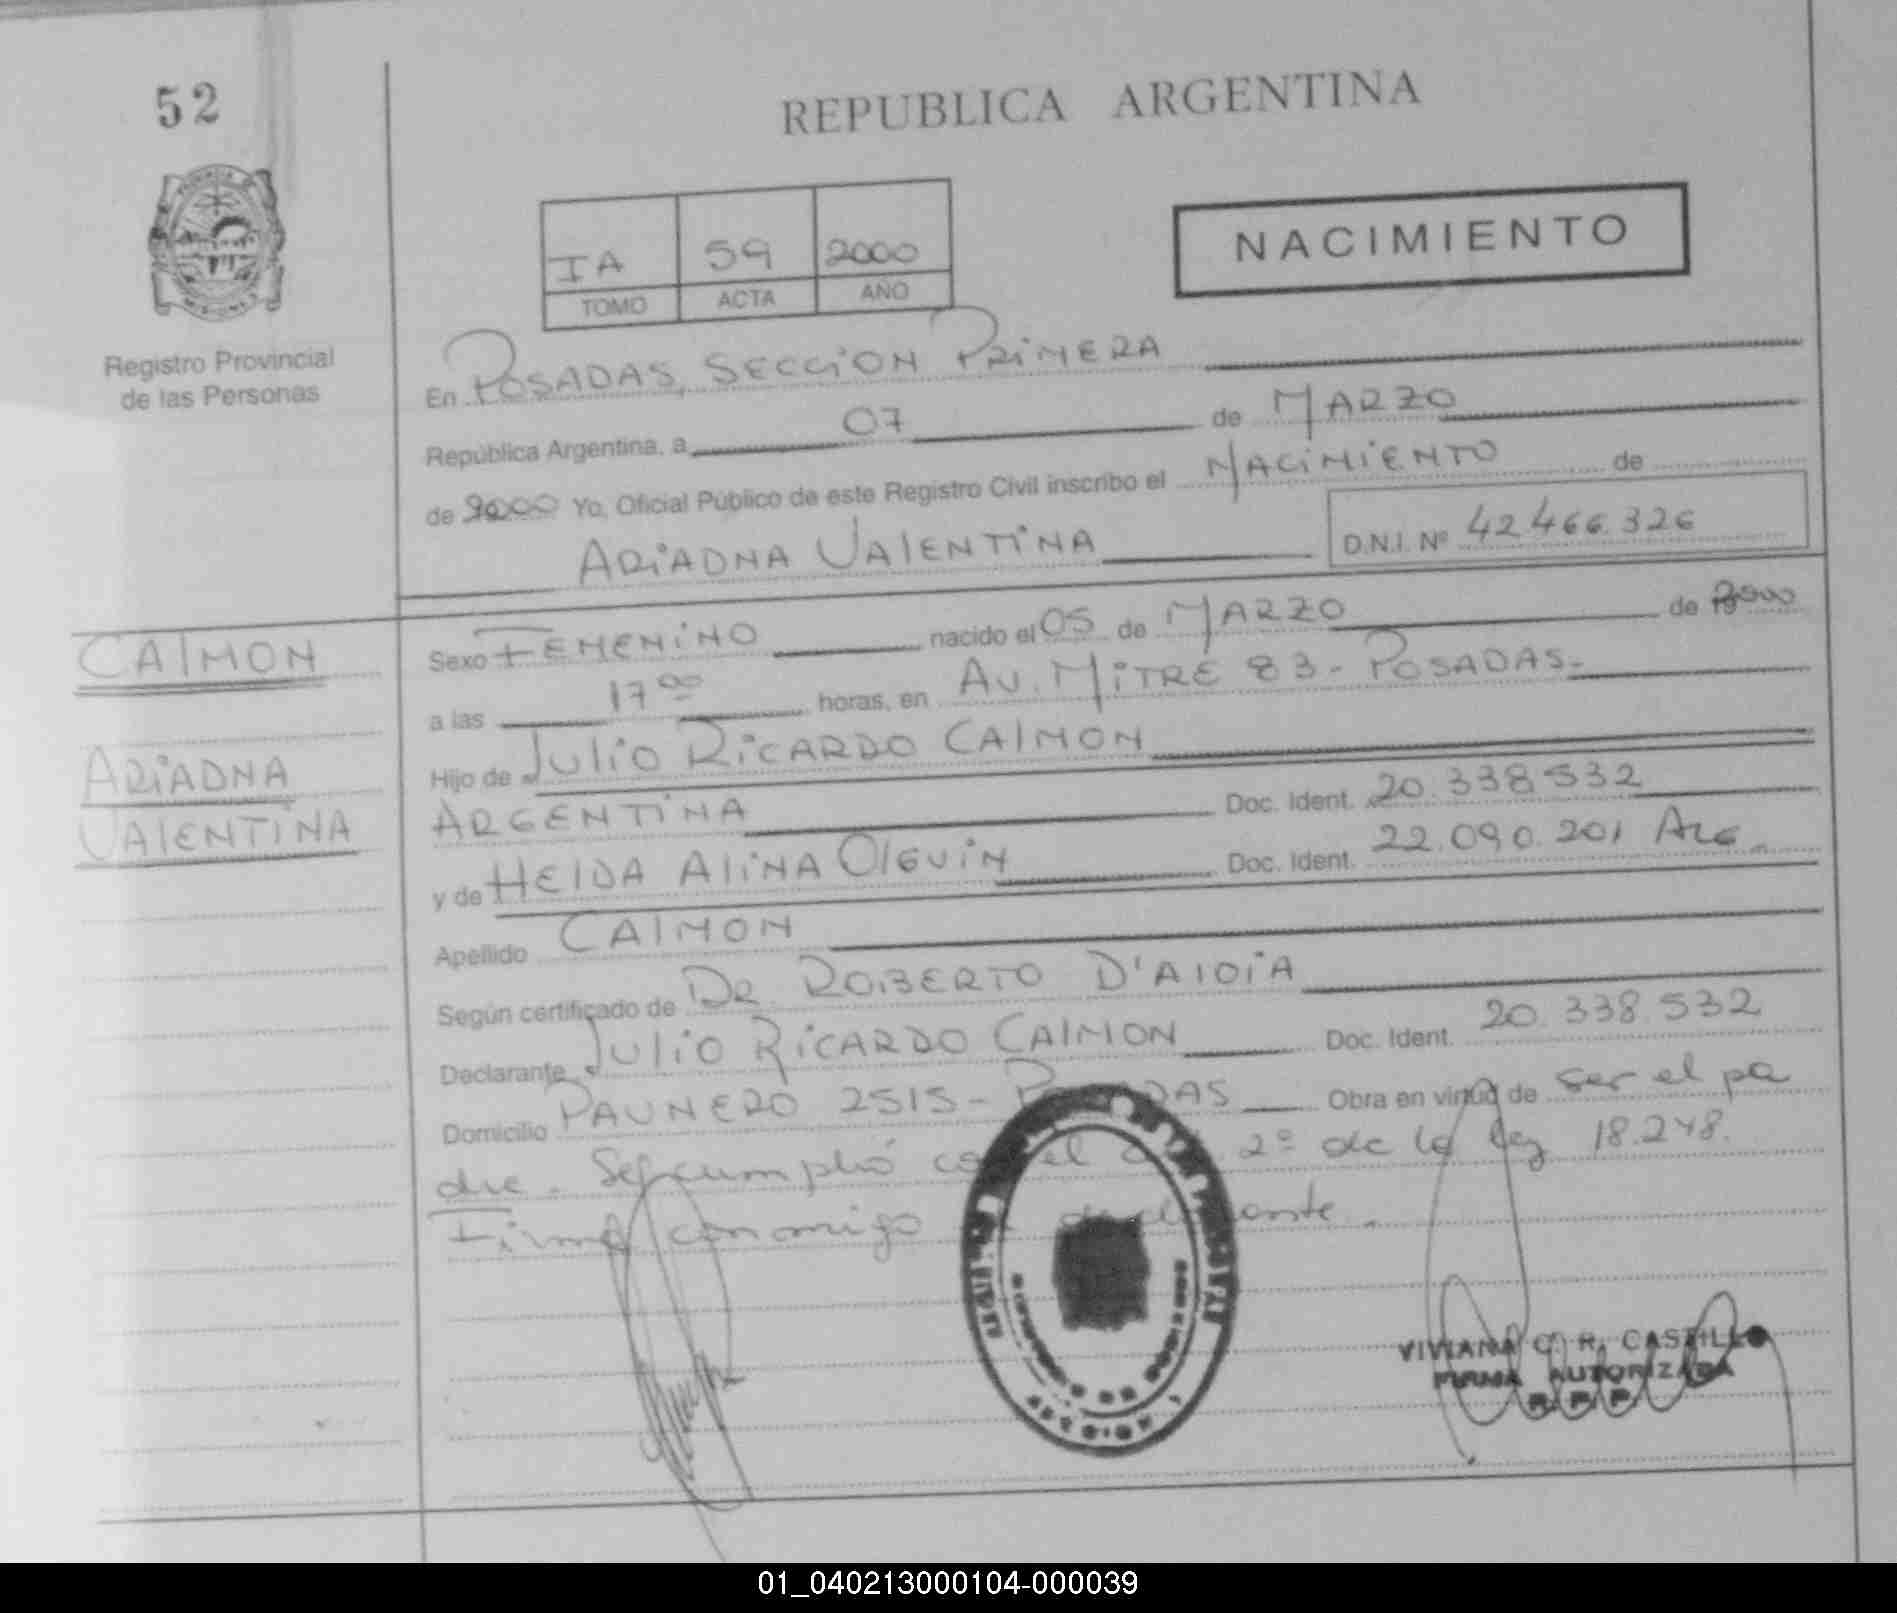 52
REPUBLICA ARGENTINA
IA 59 2000
TOMO ACTA AÑO
NACIMIENTO
Registro Provincial
de las Personas
En POSADAS, SECCION PRIMERA
República Argentina, a 07 de MARZO
de 2000 Yo, Oficial Público de este Registro Civil inscribo el NACIMIENTO de
ARIADNA VALENTINA D.N.I. Nº 42.466.326
CALMON
ARIADNA
VALENTINA
Sexo FEMENINO nacido el 05 de MARZO de 2000
a las 17 00 horas, en AV. MITRE 83 - POSADAS-
Hijo de JULIO RICARDO CALMON
ARGENTINA Doc. Ident. 20.338.532
y de HELDA ALINA OLGUIN Doc. Ident. 22.090.201 ARG
Apellido CALMON
Según certificado de DR ROBERTO D'ALOIA
Declarante JULIO RICARDO CALMON Doc. Ident. 20.338.532
Domicilio PAUNERO 2515 - POSADAS Obra en virtud de ser el pa
dre. Se cumplió con el 2º de la ley 18.248.
Firma conmigo declarante.
VIVIANA C. R. CASTILLO
FIRMA AUTORIZADA
R P P
01_040213000104-000039